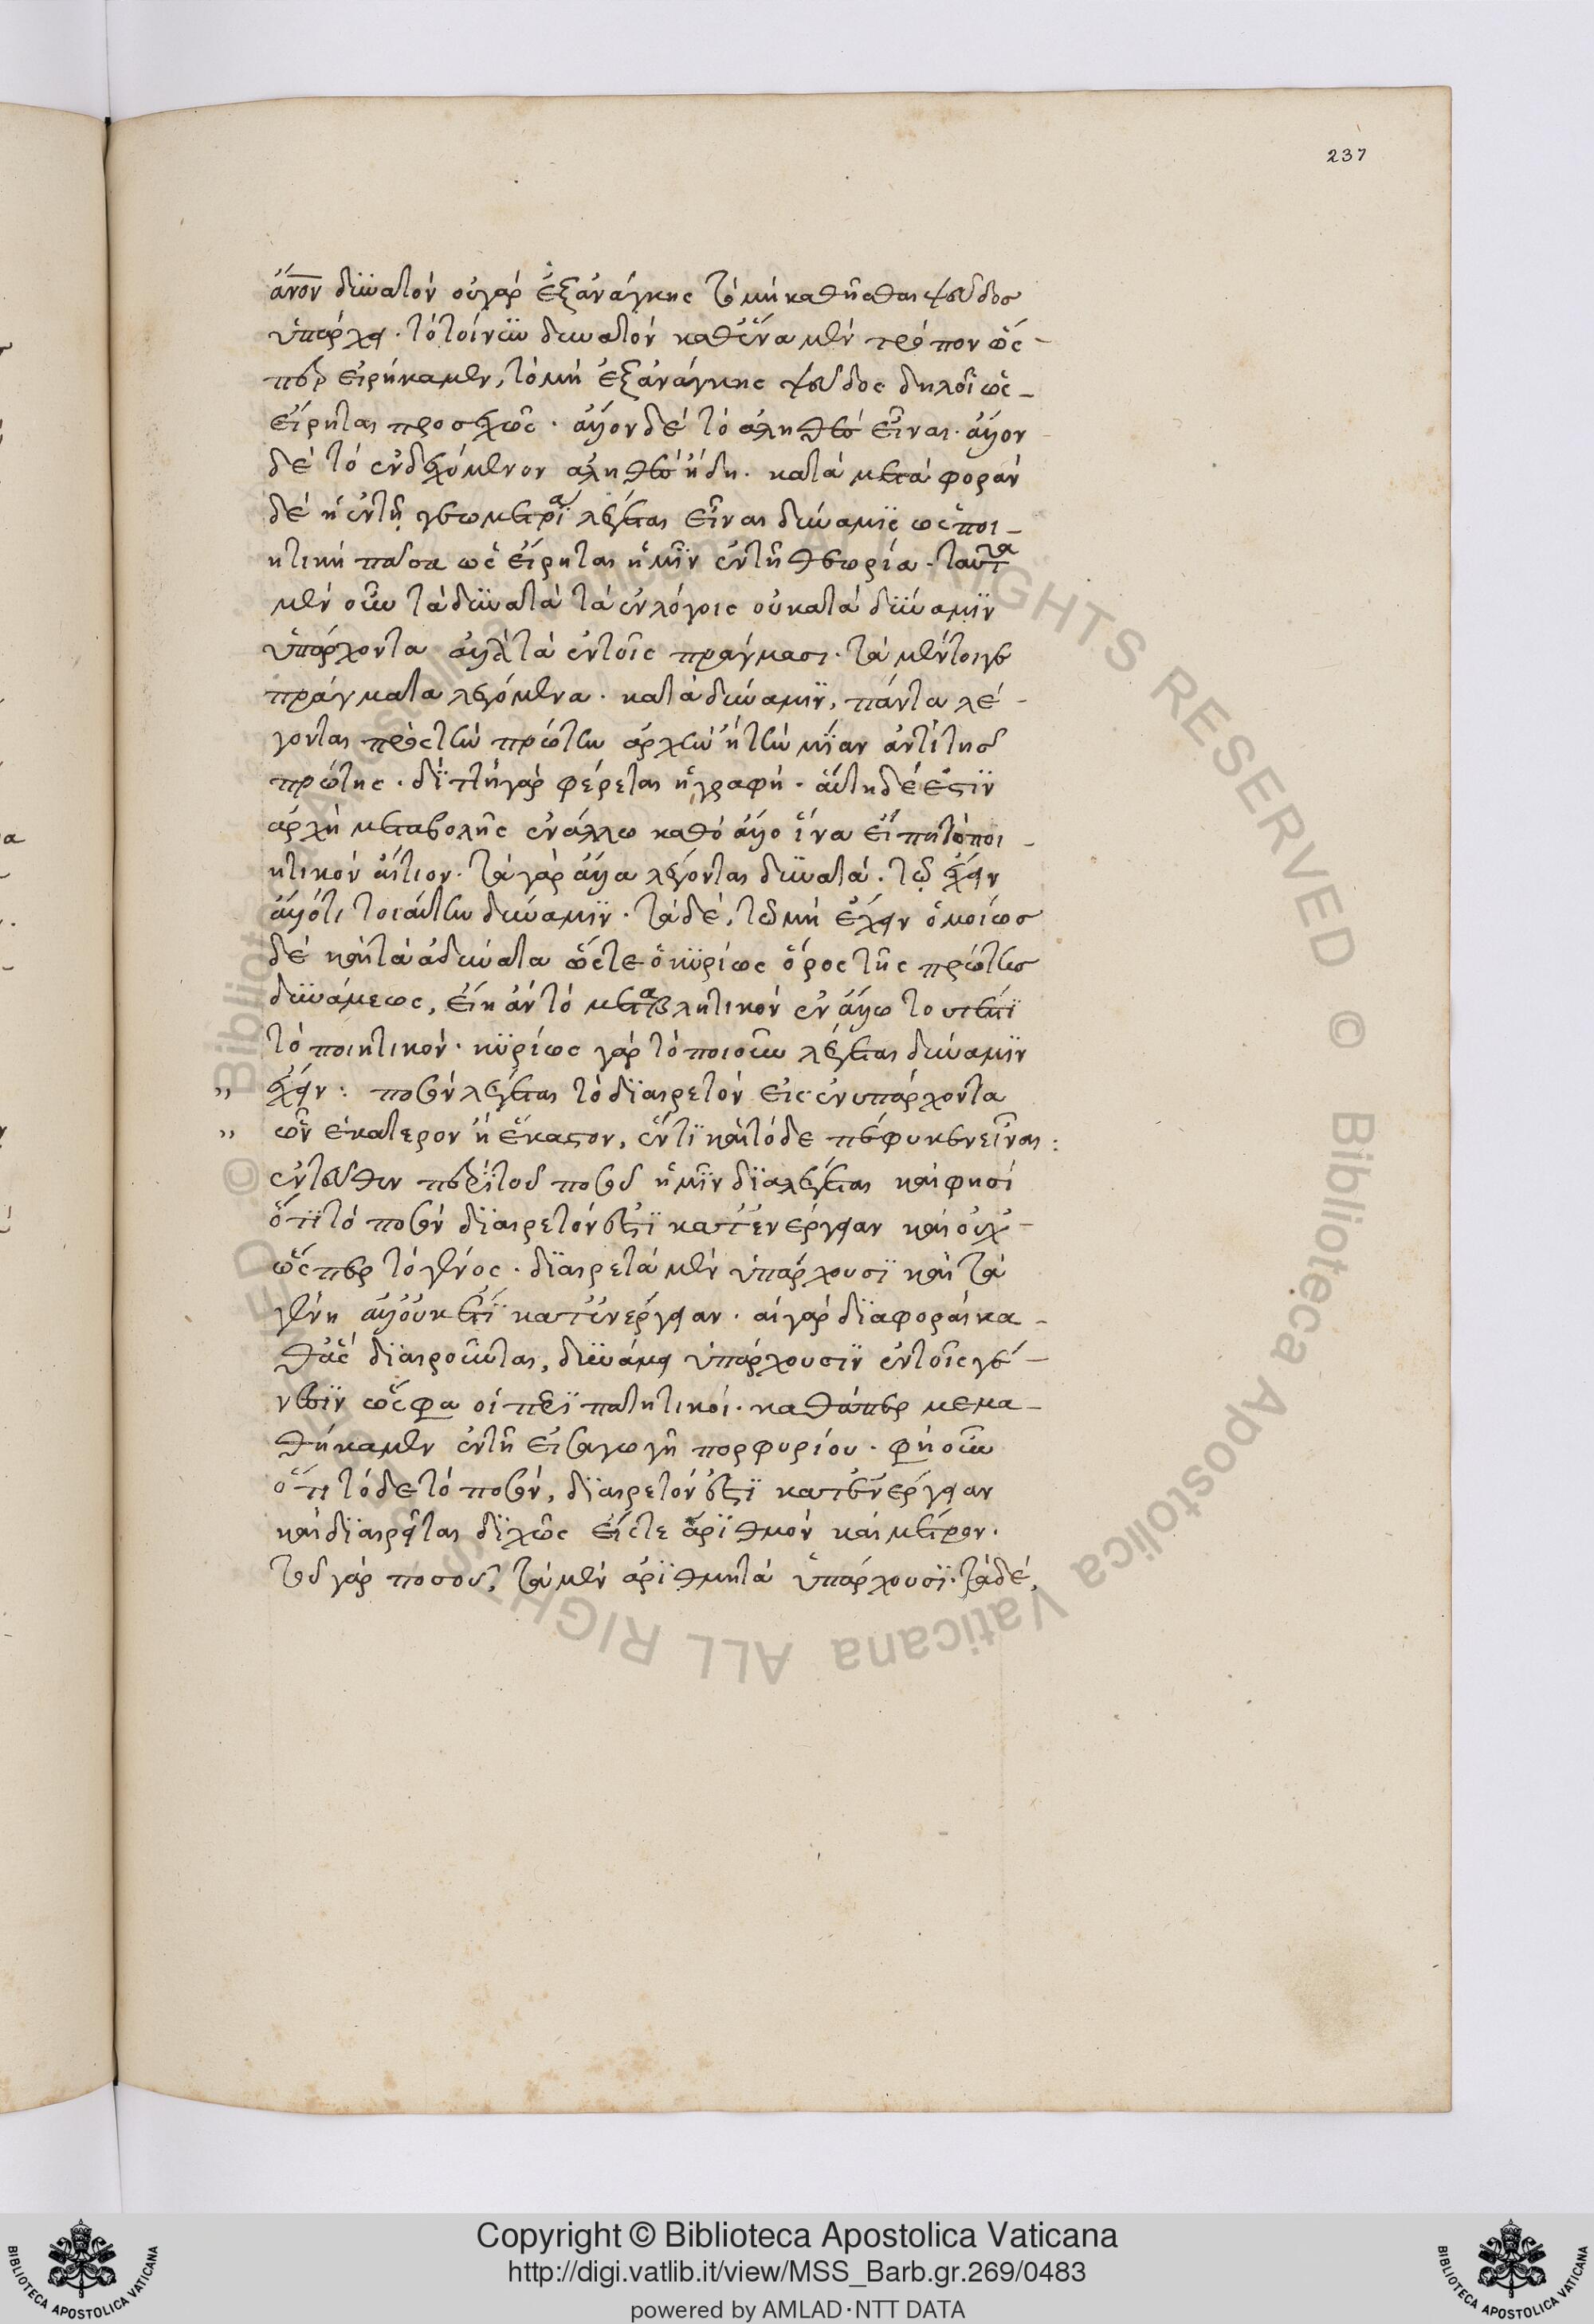 237
ἄνον δυνατόν οὐ γάρ ἐξ ἀνάγκης τό μή καθῆσθαι ψεῦδος
ὑπάρχει. τό τοίνυν δυνατόν καθ' ἕνα μέν τρόπον ὥς-
περ εἰρήκαμεν, τό μή ἐξ ἀνάγκης ψεῦδος δηλοῖ ὡς
εἴρηται προσεχῶς. ἄλλον δέ τό ἀληθές εἶναι. ἄλλον
δέ τό ἐνδεχόμενον ἀληθές ἤδη. κατά μεταφοράν
δέ ἡ ἐν τῇ γεωμετρίᾳ λέγεται εἶναι δύναμις ὡς ἡ ποι-
ητική πᾶσα ὡς εἴρηται ἡμῖν ἐν τῇ θεωρίᾳ. ταῦτα
μέν οὖν τά δυνατά τά ἐν λόγοις οὐ κατά δύναμιν
ὑπάρχοντα ἀλλά τά ἐν τοῖς πράγμασι. τά μέντοιγε
πράγματα λεγόμενα. κατά δύναμιν, πάντα λέ-
γονται πρός τήν πρώτην ἀρχήν ἤ τήν μίαν ἀντί τῆς
πρώτης. διττή γάρ φέρεται ἡ γραφή. αὕτη δέ ἐστιν
ἀρχή μεταβολῆς ἐν ἄλλῳ καθό ἄλλο ἵνα εἴπῃ τό ποι-
ητικόν αἴτιον. τά γάρ ἄλλα λέγονται δυνατά. τῷ ἔχειν
ἄλλό τι τοιαύτην δύναμιν. τά δέ, τῷ μή ἔχειν ὁμοίως
δέ καί τά ἀδύνατα ὥςτε ὁ κυρίως ὅρος τῆς πρώτης
δυνάμεως, εἴη ἄν τό μεταβλητικόν ἐν ἄλλῳ τουτέστι
τό ποιητικόν. κυρίως γάρ τό ποιοῦν λέγεται δύναμιν
" ἔχειν: ποσόν λέγεται τό διαιρετόν εἰς ἐνυπάρχοντα
" ὧν ἑκάτερον ἤ ἕκαστον, ἕν τι καί τόδε πέφυκεν εἶναι:
ἐντεῦθεν περί τοῦ ποσοῦ ἡμῖν διαλέγεται καί φησί
ὅτι τό ποσόν διαιρετόν ἐστι κατ' ἐνέργειαν καί οὐχ
ὥςπερ τό γένος. διαιρετά μέν ὑπάρχουσι καί τά
γένη ἀλλ' οὐκέτι κατ' ἐνέργειαν. αἱ γάρ διαφοραί κα-
θ' ἅς διαιροῦνται, δυνάμει ὑπάρχουσιν ἐν τοῖς γέ-
νεσιν ὥς φασι οἱ περιπατητικοί. καθάπερ μεμα-
θήκαμεν ἐν τῇ εἰσαγωγῇ πορφυρίου. φησί οὖν
ὅτι τόδε τό ποσόν, διαιρετόν ἐστι κατ' ἐνέργειαν
καί διαιρεῖται διχῶς εἴς τε ἀριθμόν καί μέτρον.
τοῦ γάρ ποσοῦ, τά μέν ἀριθμητά ὑπάρχουσι. τά δέ,
© Biblioteca Apostolica Vaticana ALL RIGHTS RESERVED © Biblioteca Apostolica Vaticana ALL RIGHTS RESERVED
BIBLIOTECA APOSTOLICA VATICANA
Copyright © Biblioteca Apostolica Vaticana
http://digi.vatlib.it/view/MSS_Barb.gr.269/0483
powered by AMLAD·NTT DATA
BIBLIOTECA APOSTOLICA VATICANA